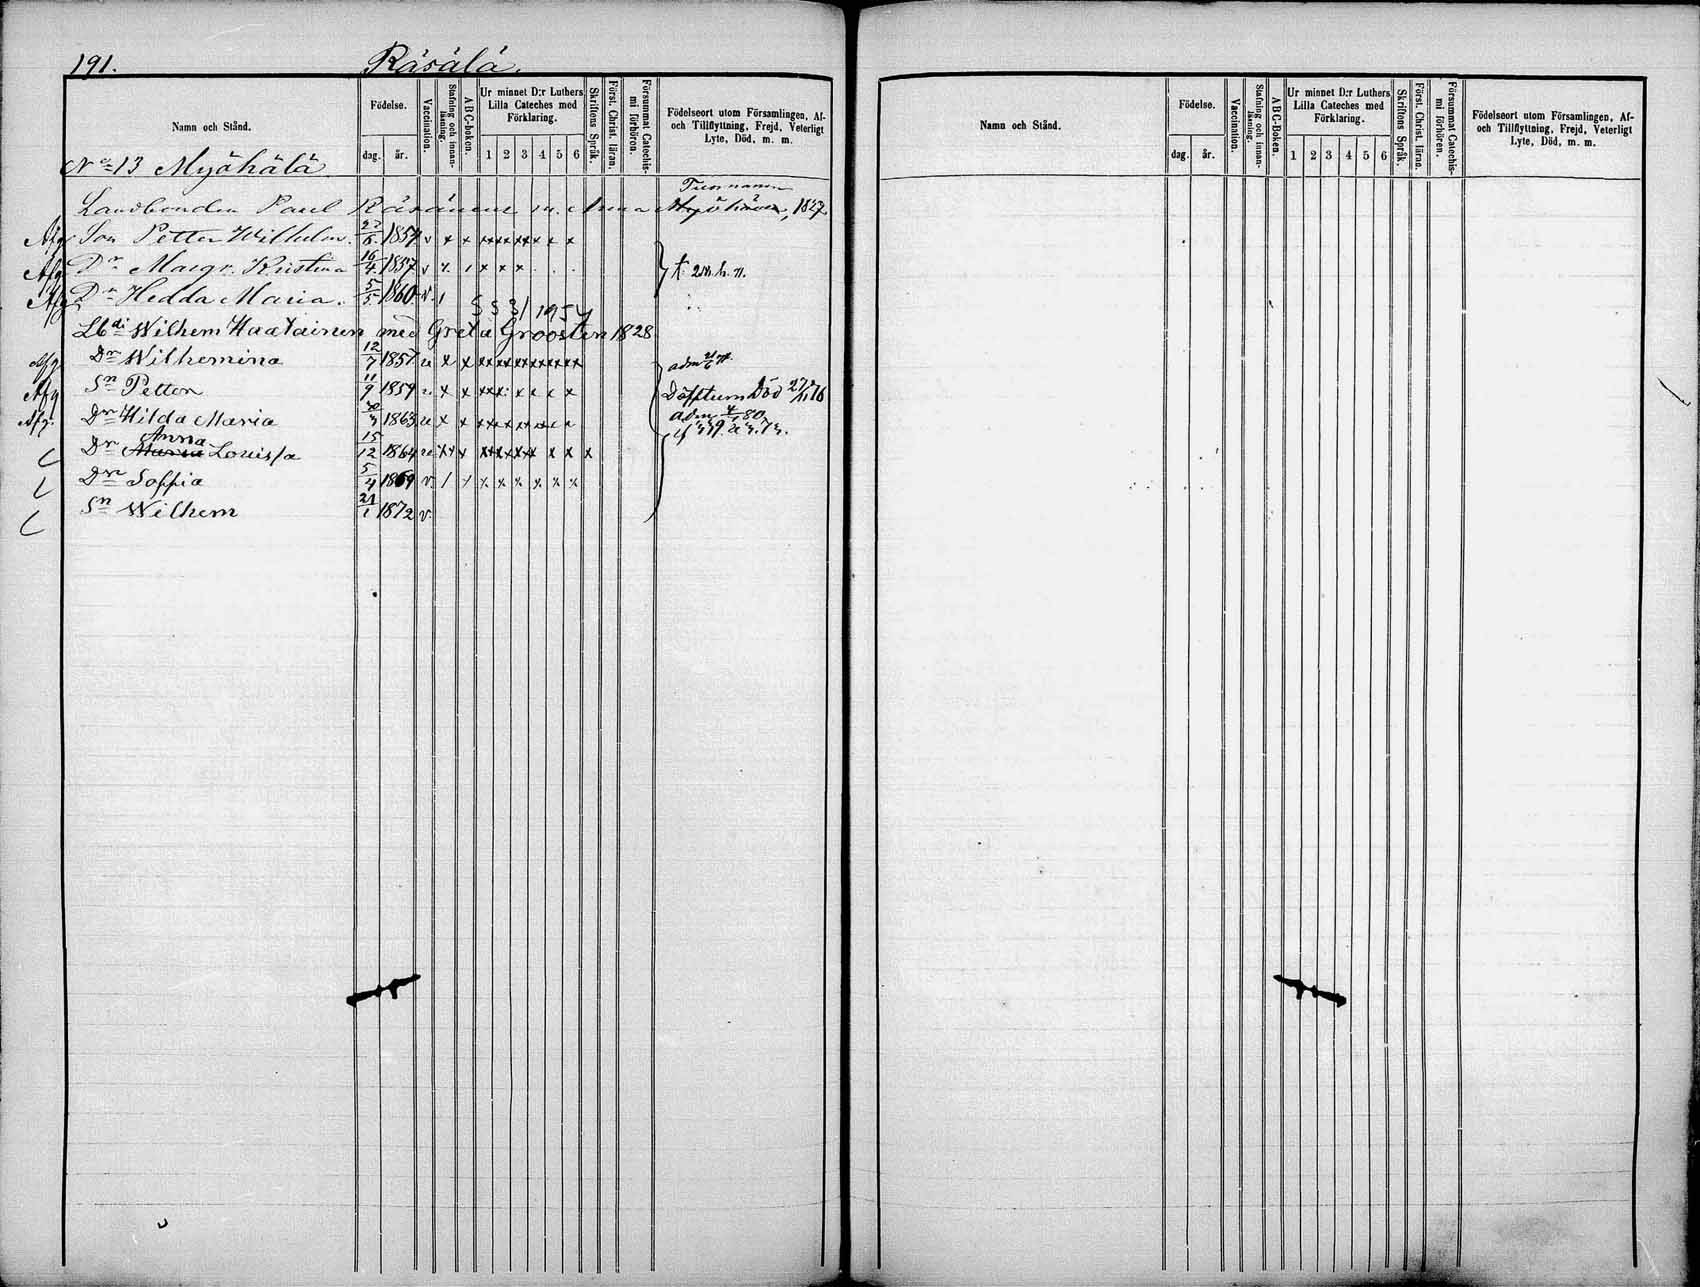 191. Räsälä.
Namn och Stånd.
Födelse.
dag. år.
Vaccination.
Stafning och innan-läsning.
A B C-boken.
Ur minnet D:r Luthers Lilla Cateches med Förklaring.
1 2 3 4 5 6
Skriftens Språk.
Först. Christ. läran.
Försummat Catechismi förhören.
Födelseort utom Församlingen, Af-
och Tillflyttning, Frejd, Veterligt
Lyte, Död, m. m.
No 13 Myöhälä
Landbonden Paul Räsänen m. Anna 1827
Son Petter Wilhelm. 1854 v x x x x x x x x
Afg Dr Margr. Kristina 16/4 1857 v x x x x
Afg Dr Hedda Maria. 5/5 1860 v
Lbdi Wilhem Haatainen med Greta Groosten 1828
Afg Dr Wilhemina 12/7 1857 x x x x x x x x
Afg Sn Petter 11/9 1859 x x x x x x x x Död 27/11 76
Afg. Dr Hilda Maria 1863 x x x x x x x x adm 80
Dr Maria Anna Lovissa 15/12 1864 x x x x x x x x x
Dr Soffia 5/4 1869 v. x x x x x x
Sn Wilhem 21/1 1872 v.
Namn och Stånd.
Födelse.
dag. år.
Vaccination.
Stafning och innan-läsning.
A B C-Boken.
Ur minnet D:r Luthers Lilla Cateches med Förklaring.
1 2 3 4 5 6
Skriftens Språk.
Först. Christ. läran.
Försummat Catechismi förhören.
Födelseort utom Församlingen, Af-
och Tillflyttning, Frejd, Veterligt
Lyte, Död, m. m.